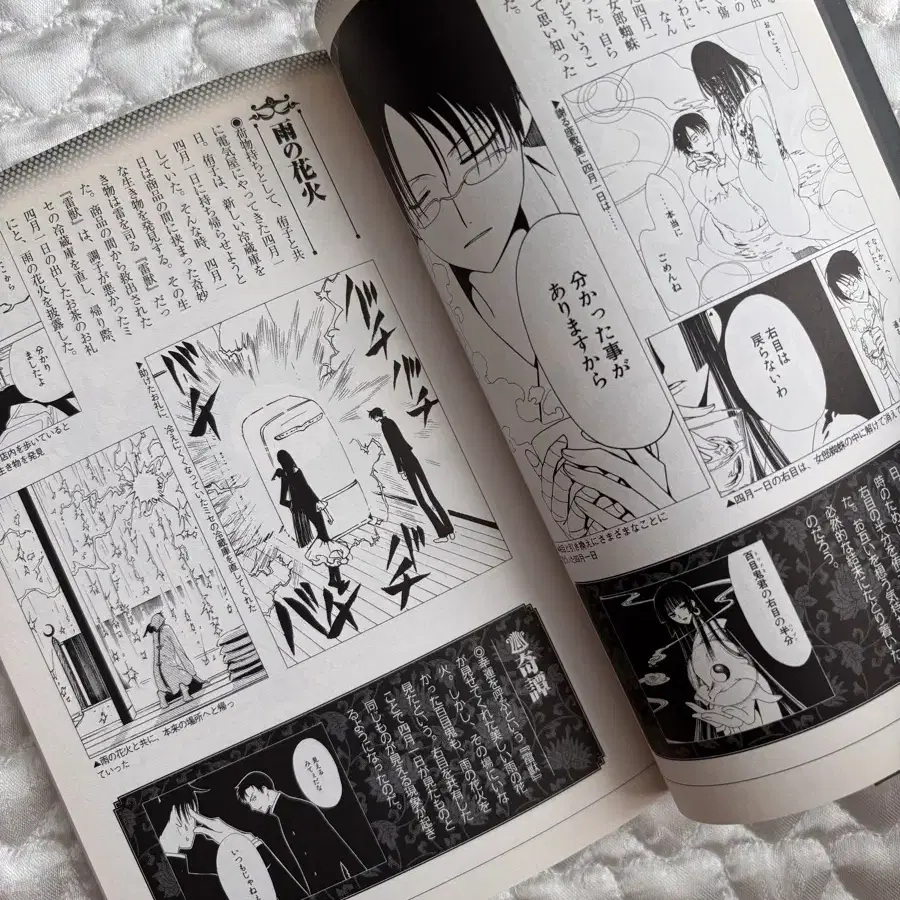 出
傷の
らわに
なん
た四月一
女郎蜘蛛
た。自ら
などういうこ
て思い知った
た。
おれこそ……
……本当に
ごめんね
▶謝る座敷童に四月一日は……
分かった事が
ありますから
右目は
戻らないわ
▲四月一日の右目は、女郎蜘蛛の中に解けて消えて
引き換えにさまざまなことに
時のため
右目の半分を侑
た。お互いを想う気持
必然的な結末にたどり着い
のだろう。
百目鬼君の右目の半分
雨の花火
◉荷物持ちとして、侑子と共
に電気屋にやってきた四月一
日。侑子は、新しい冷蔵庫を
四月一日に持ち帰らせようと
していた。そんな時、四月一
日は商品の間に挟まった奇妙
な生き物を発見する。その生
き物は雷を司る『雷獣』だっ
た。商品の間から救出された
『雷獣』は、調子が悪かったミ
セの冷蔵庫を直し、帰り際、
四月一日の出したお茶のお礼
にと、雨の花火を披露した。
バチ
バチ
バチ
バチ
バチ
▲助けたお礼に、冷えにくくなっていたミセの冷蔵庫を直してくれた
分かり
ましたよ
店内を歩いていると
生き物を発見
▲雨の花火と共に、本来の場所へと帰っ
ていった
奇譚
◎幸運を呼ぶという『雷獣』
が見せてくれた美しい雨の花
火。しかし、その場にいな
かった百目鬼も、雨の花火を
見たという。右目を共有した
ことで四月一日が見たものと
同じものが見える現象が起き
るようになったのだ。
見える
みてェだな
いつもじゃねェ